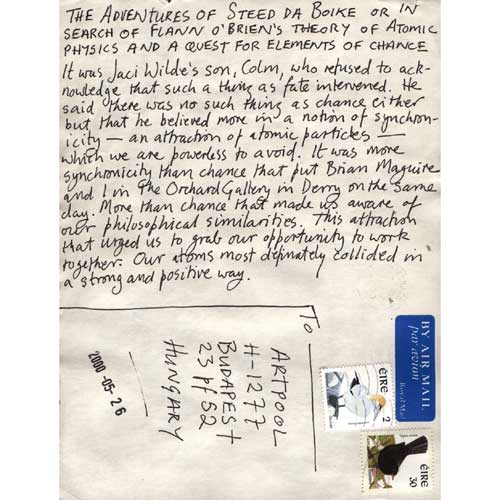 THE ADVENTURES OF STEED DA BOIKE OR IN
SEARCH OF FLANN O'BRIEN'S THEORY OF ATOMIC
PHYSICS AND A QUEST FOR ELEMENTS OF CHANCE
It was Jaci Wilde's son, Colm, who refused to ack-
nowledge that such a thing as fate intervened. He
said there was no such thing as chance either
but that he believed more in a notion of synchron-
icity — an attraction of atomic particles —
which we are powerless to avoid. It was more
synchronicity than chance that put Brian Maguire
and I in the Orchard Gallery in Derry on the same
day. More than chance that made us aware of
our philosophical similarities. This attraction
that urged us to grab our opportunity to work
together. Our atoms most definately collided in
a strong and positive way.
To
ARTPOOL
H-1277
BUDAPEST
23 Pf 52
HUNGARY
2000 -05- 26
BY AIR MAIL
par avion
Royal Mail
ÉIRE
2
ÉIRE
30